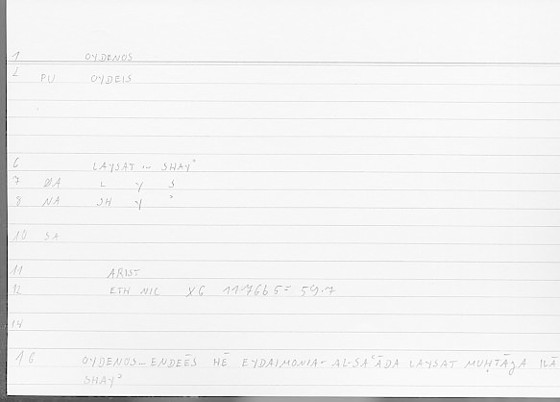 1 OYDENOS
2 PU OYDEIS
6 LAYSAT ... SHAYʾ
7 WA L Y S
8 NA SH Y ʾ
10 SA
11 ARIST
12 ETH NIC X6 1176b5= 59.7
14
16 OYDENOS_ENDEĒS HĒ EYDAIMONIA- AL-SAʿĀDA LAYSAT MUḤTĀǦA ILĀ
SHAYʾ